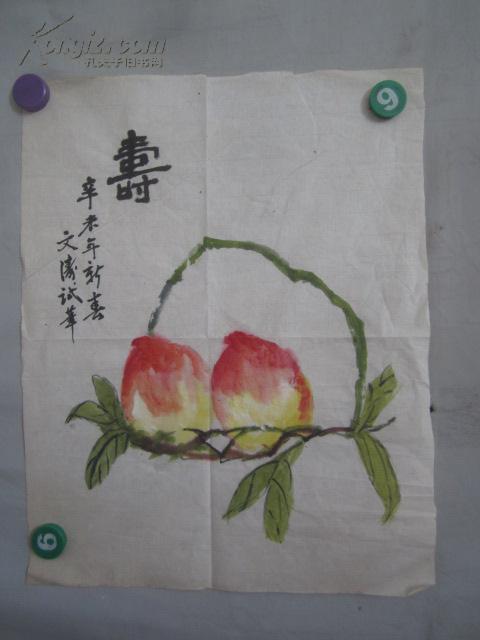 Kongfz.com
孔夫子旧书网
壽
辛未年新春
文濤試筆
6
6